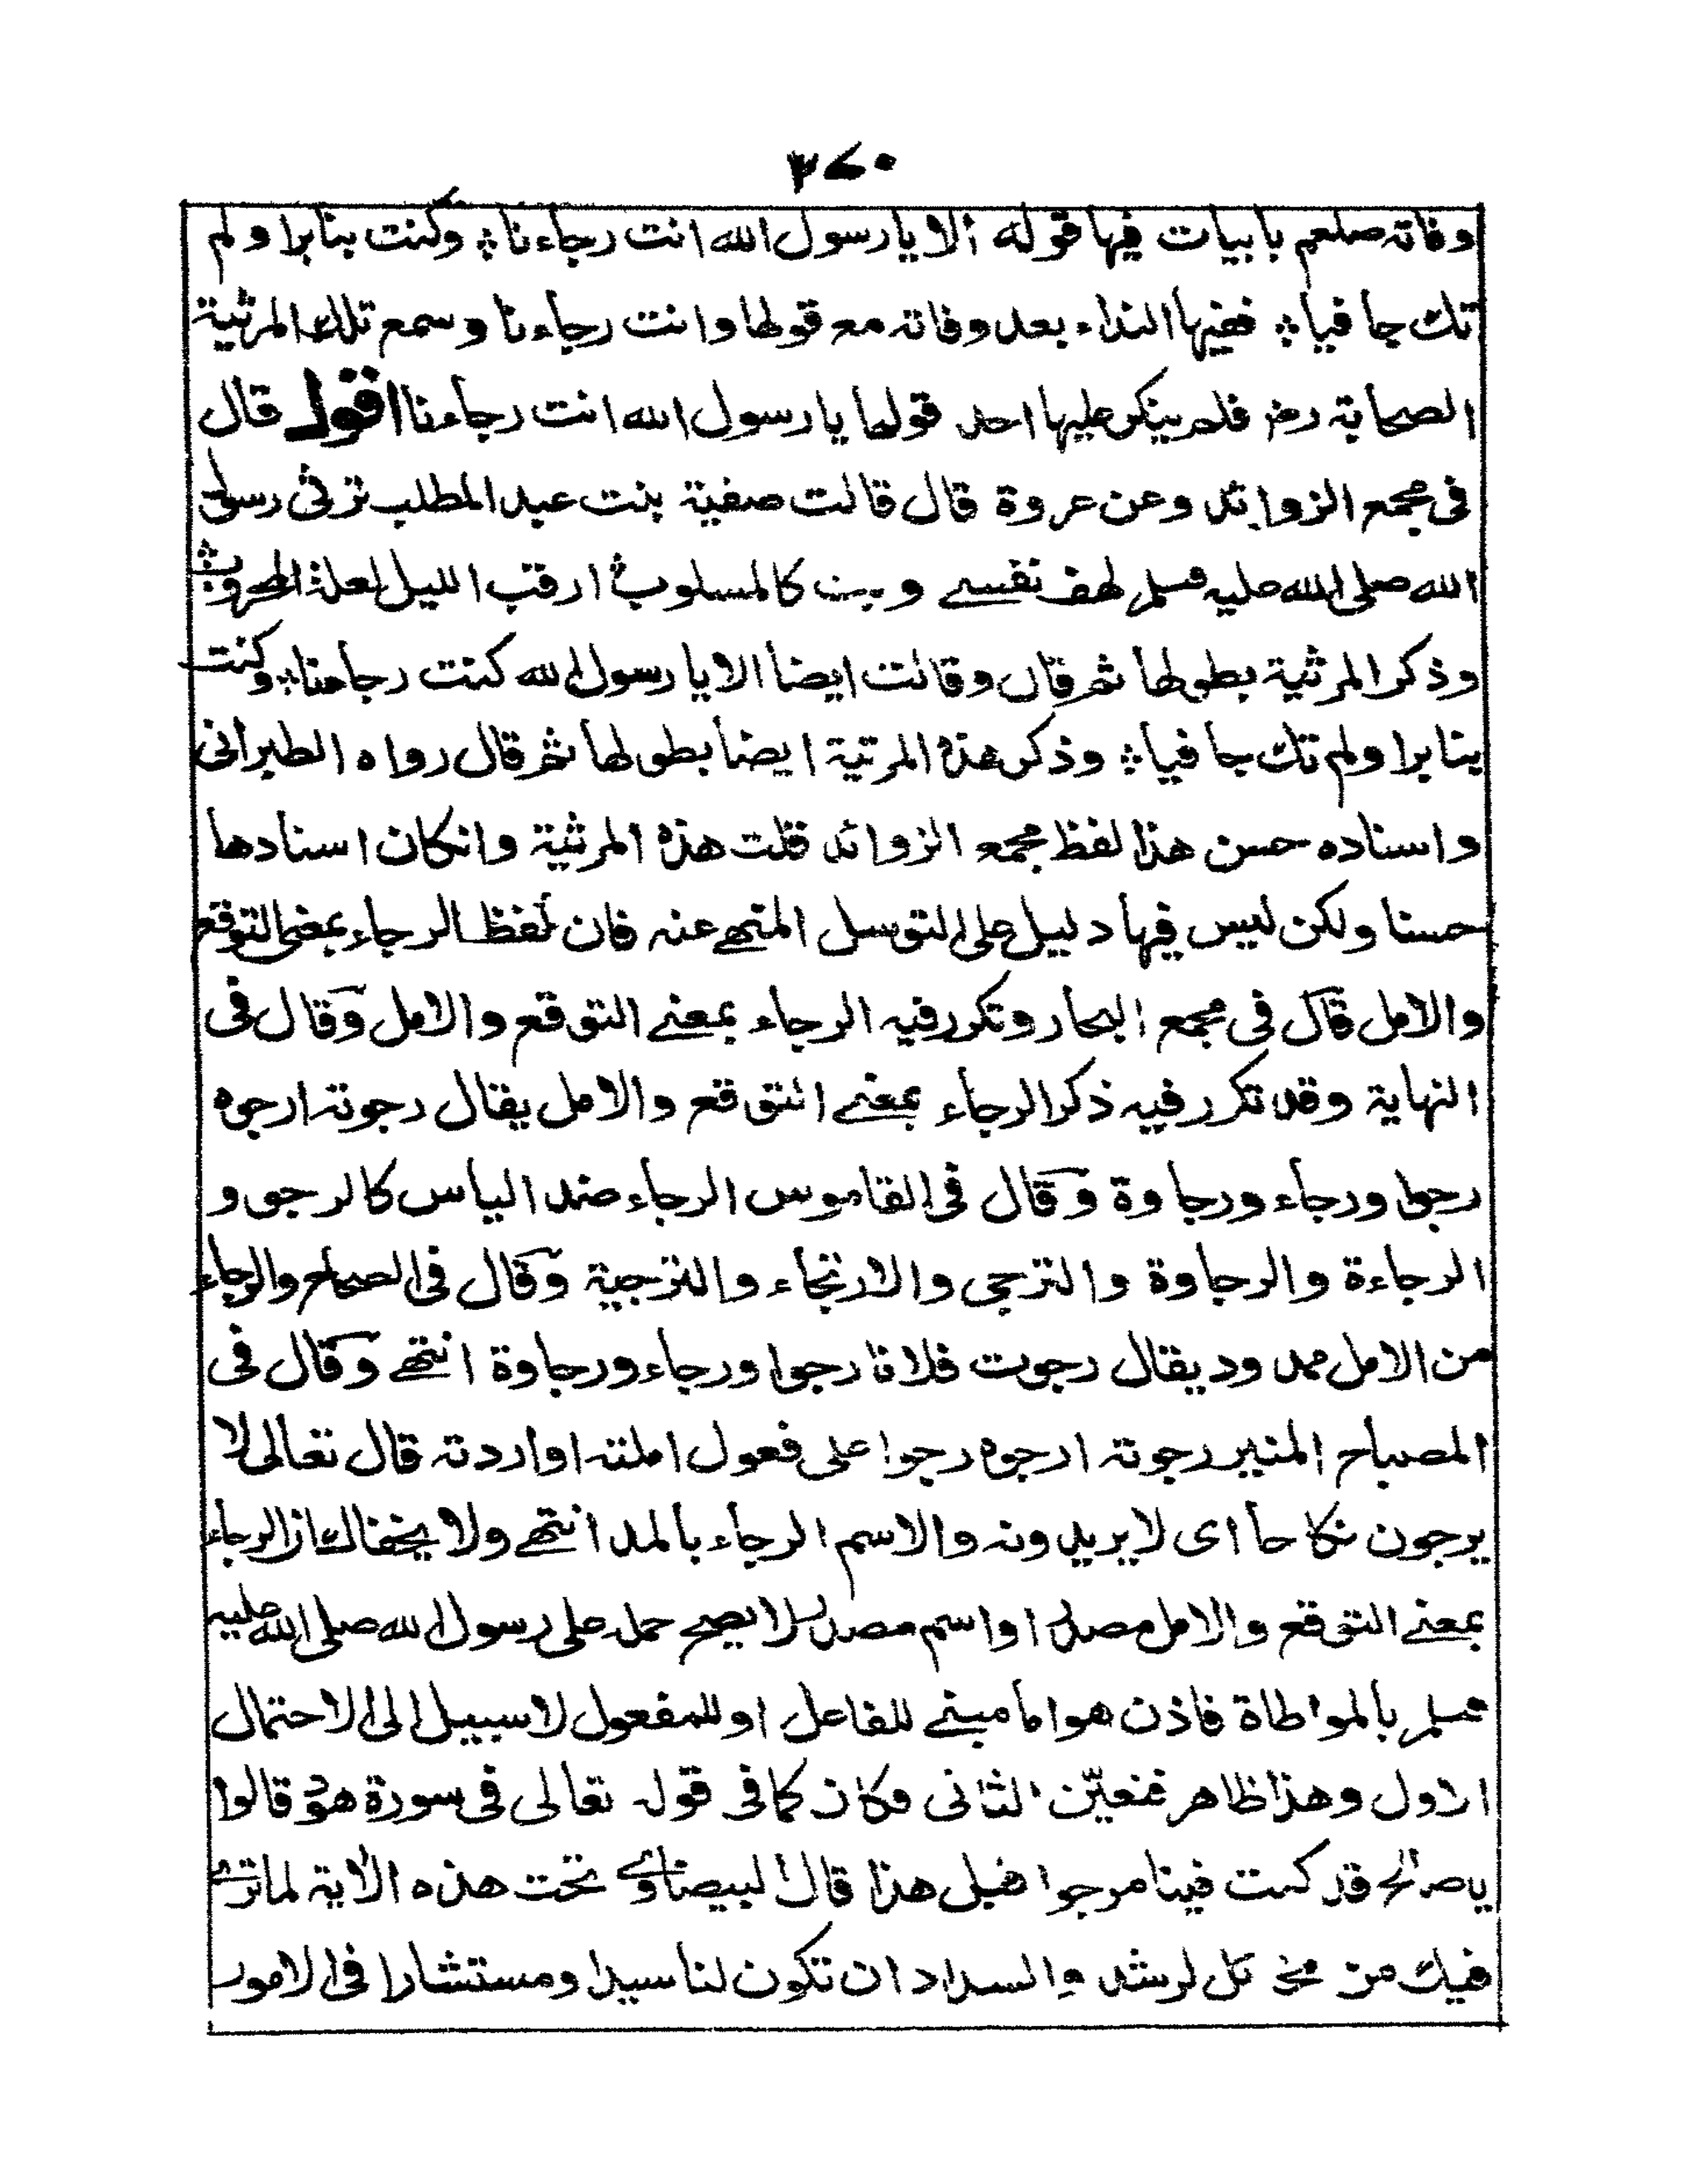 ۳۷۰
وفاته صلعم بابيات فيها قوله الا يا رسول الله انت رجاءنا ؞ وكنت بنا برا ولم
تك جا فيا ؞ ففيها النداء بعد وفاته مع قولها وانت رجاءنا وسمع تلك المرثية
الصحابة رض فلم ينكر عليها احد قولها يا رسول الله انت رجاءنا اقول قال
فى مجمع الزوائد وعن عروة قال قالت صفية بنت عبد المطلب ترثى رسول
الله صلى الله عليه وسلم لهف نفسے وبت كالمسلوب ؞ ارقب الليل فعلة المحروب ؞
وذكر المرثية بطولها ثم قال وقالت ايضا الا يا رسول الله كنت رجاءنا ؞ وكنت
بنا برا ولم تك جا فيا ؞ وذكر هذه المرثية ايضا بطولها ثم قال رواه الطبرانى
واسناده حسن هذا لفظ مجمع الزوائد قلت هذه المرثية وانكان اسنادها
حسنا ولكن ليس فيها دليل على التوسل المنهے عنه فان لفظ الرجاء بمعنى التوقع
والامل قال فى مجمع البحار وتكرر فيه الرجاء بمعنے التوقع والامل وقال فى
النهاية وقد تكرر فيه ذكر الرجاء بمعنے التوقع والامل يقال رجوته ارجوه
رجوا ورجاء ورجاوة وقال فى القاموس الرجاء ضد الياس كالرجو و
الرجاءة والرجاوة والترجى والارتجاء والترجية وقال فى الصحاح والرجاء
من الامل ممدود يقال رجوت فلانا رجوا ورجاء ورجاوة انتهے وقال فى
المصباح المنير رجوته ارجوه رجوا على فعول املته او اردته قال تعالى لا
يرجون نكاحا اى لا يريدونه والاسم الرجاء بالمد انتهے ولا يخفاك ان الرجاء
بمعنے التوقع والامل مصدر او اسم مصدر لا يصح حمله على رسول الله صلى الله عليه
وسلم بالمواطاة فاذن هو اما مبنے للفاعل او للمفعول لا سبيل الى الاحتمال
الاول وهذا ظاهر فتعيّن الثانى فكان كما فى قوله تعالى فى سورة هود قالوا
يا صالح قد كنت فينا مرجوا قبل هذا قال البيضاوے تحت هذه الآية لما نرے
فيك من مخائل الرشد والسداد ان تكون لنا سيدا ومستشارا فى الامور